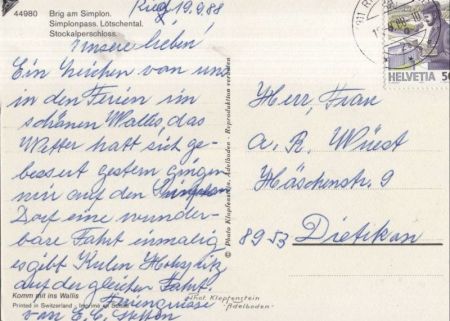 44980 Brig am Simplon.
Simplonpass. Lötschental.
Stockalperschloss.
Ried 19.9.88
Unsere Lieben!
Ein Zeichen von uns
in den Ferien im
schönen Wallis, das
Wetter hatt sich ge-
bessert gestern gingen
wir auf den Simplon
Dorf eine wunder-
bare Fahrt einmalig
es gibt
auf der gleichen Fahrt.
Feriengrüsse
von E. E.
Komm mit ins Wallis
Printed in Switzerland - Imprimé en Suisse
© Photo Klopfenstein, Adelboden - Reproduktion verboten
HELVETIA 50
Herr, Frau
A. R. Wüest
Häschenstr. 9
8953 Dietikon
Phot. Klopfenstein
"Adelboden"